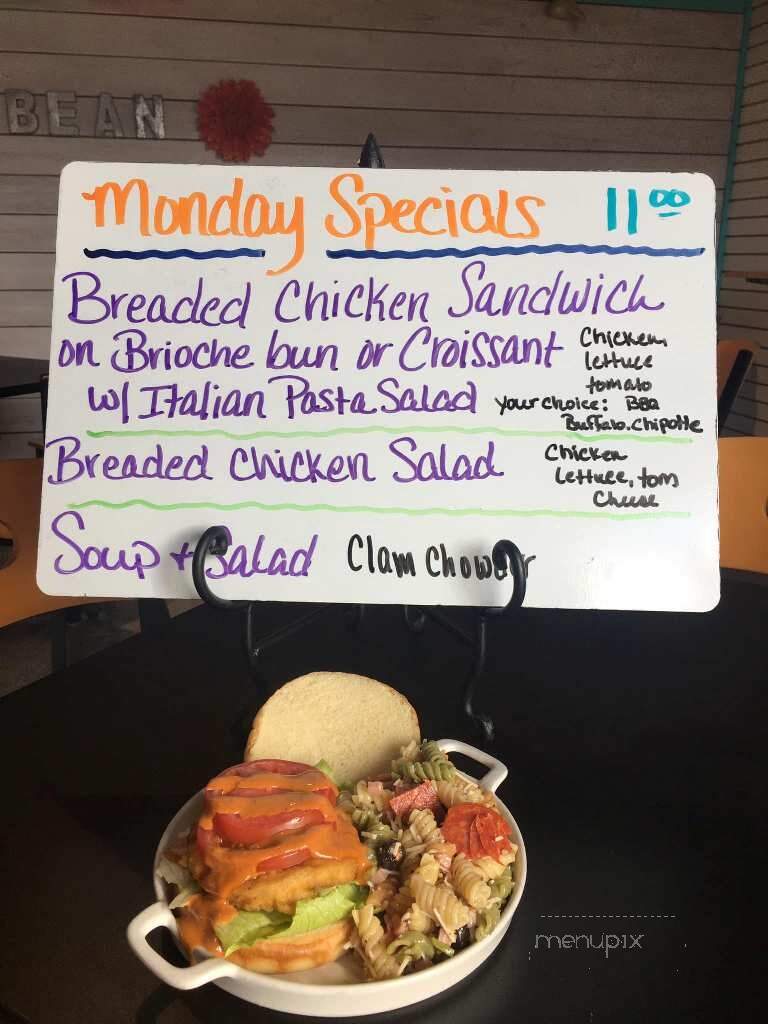 BEAN
Monday Specials 11⁰⁰
Breaded Chicken Sandwich
on Brioche bun or Croissant
w/ Italian Pasta Salad
Chicken,
lettuce
tomato
your choice: BBQ
Buffalo. Chipotle
Breaded Chicken Salad
Chicken
Lettuce, tom
Cheese
Soup + Salad Clam Chowder
menupix